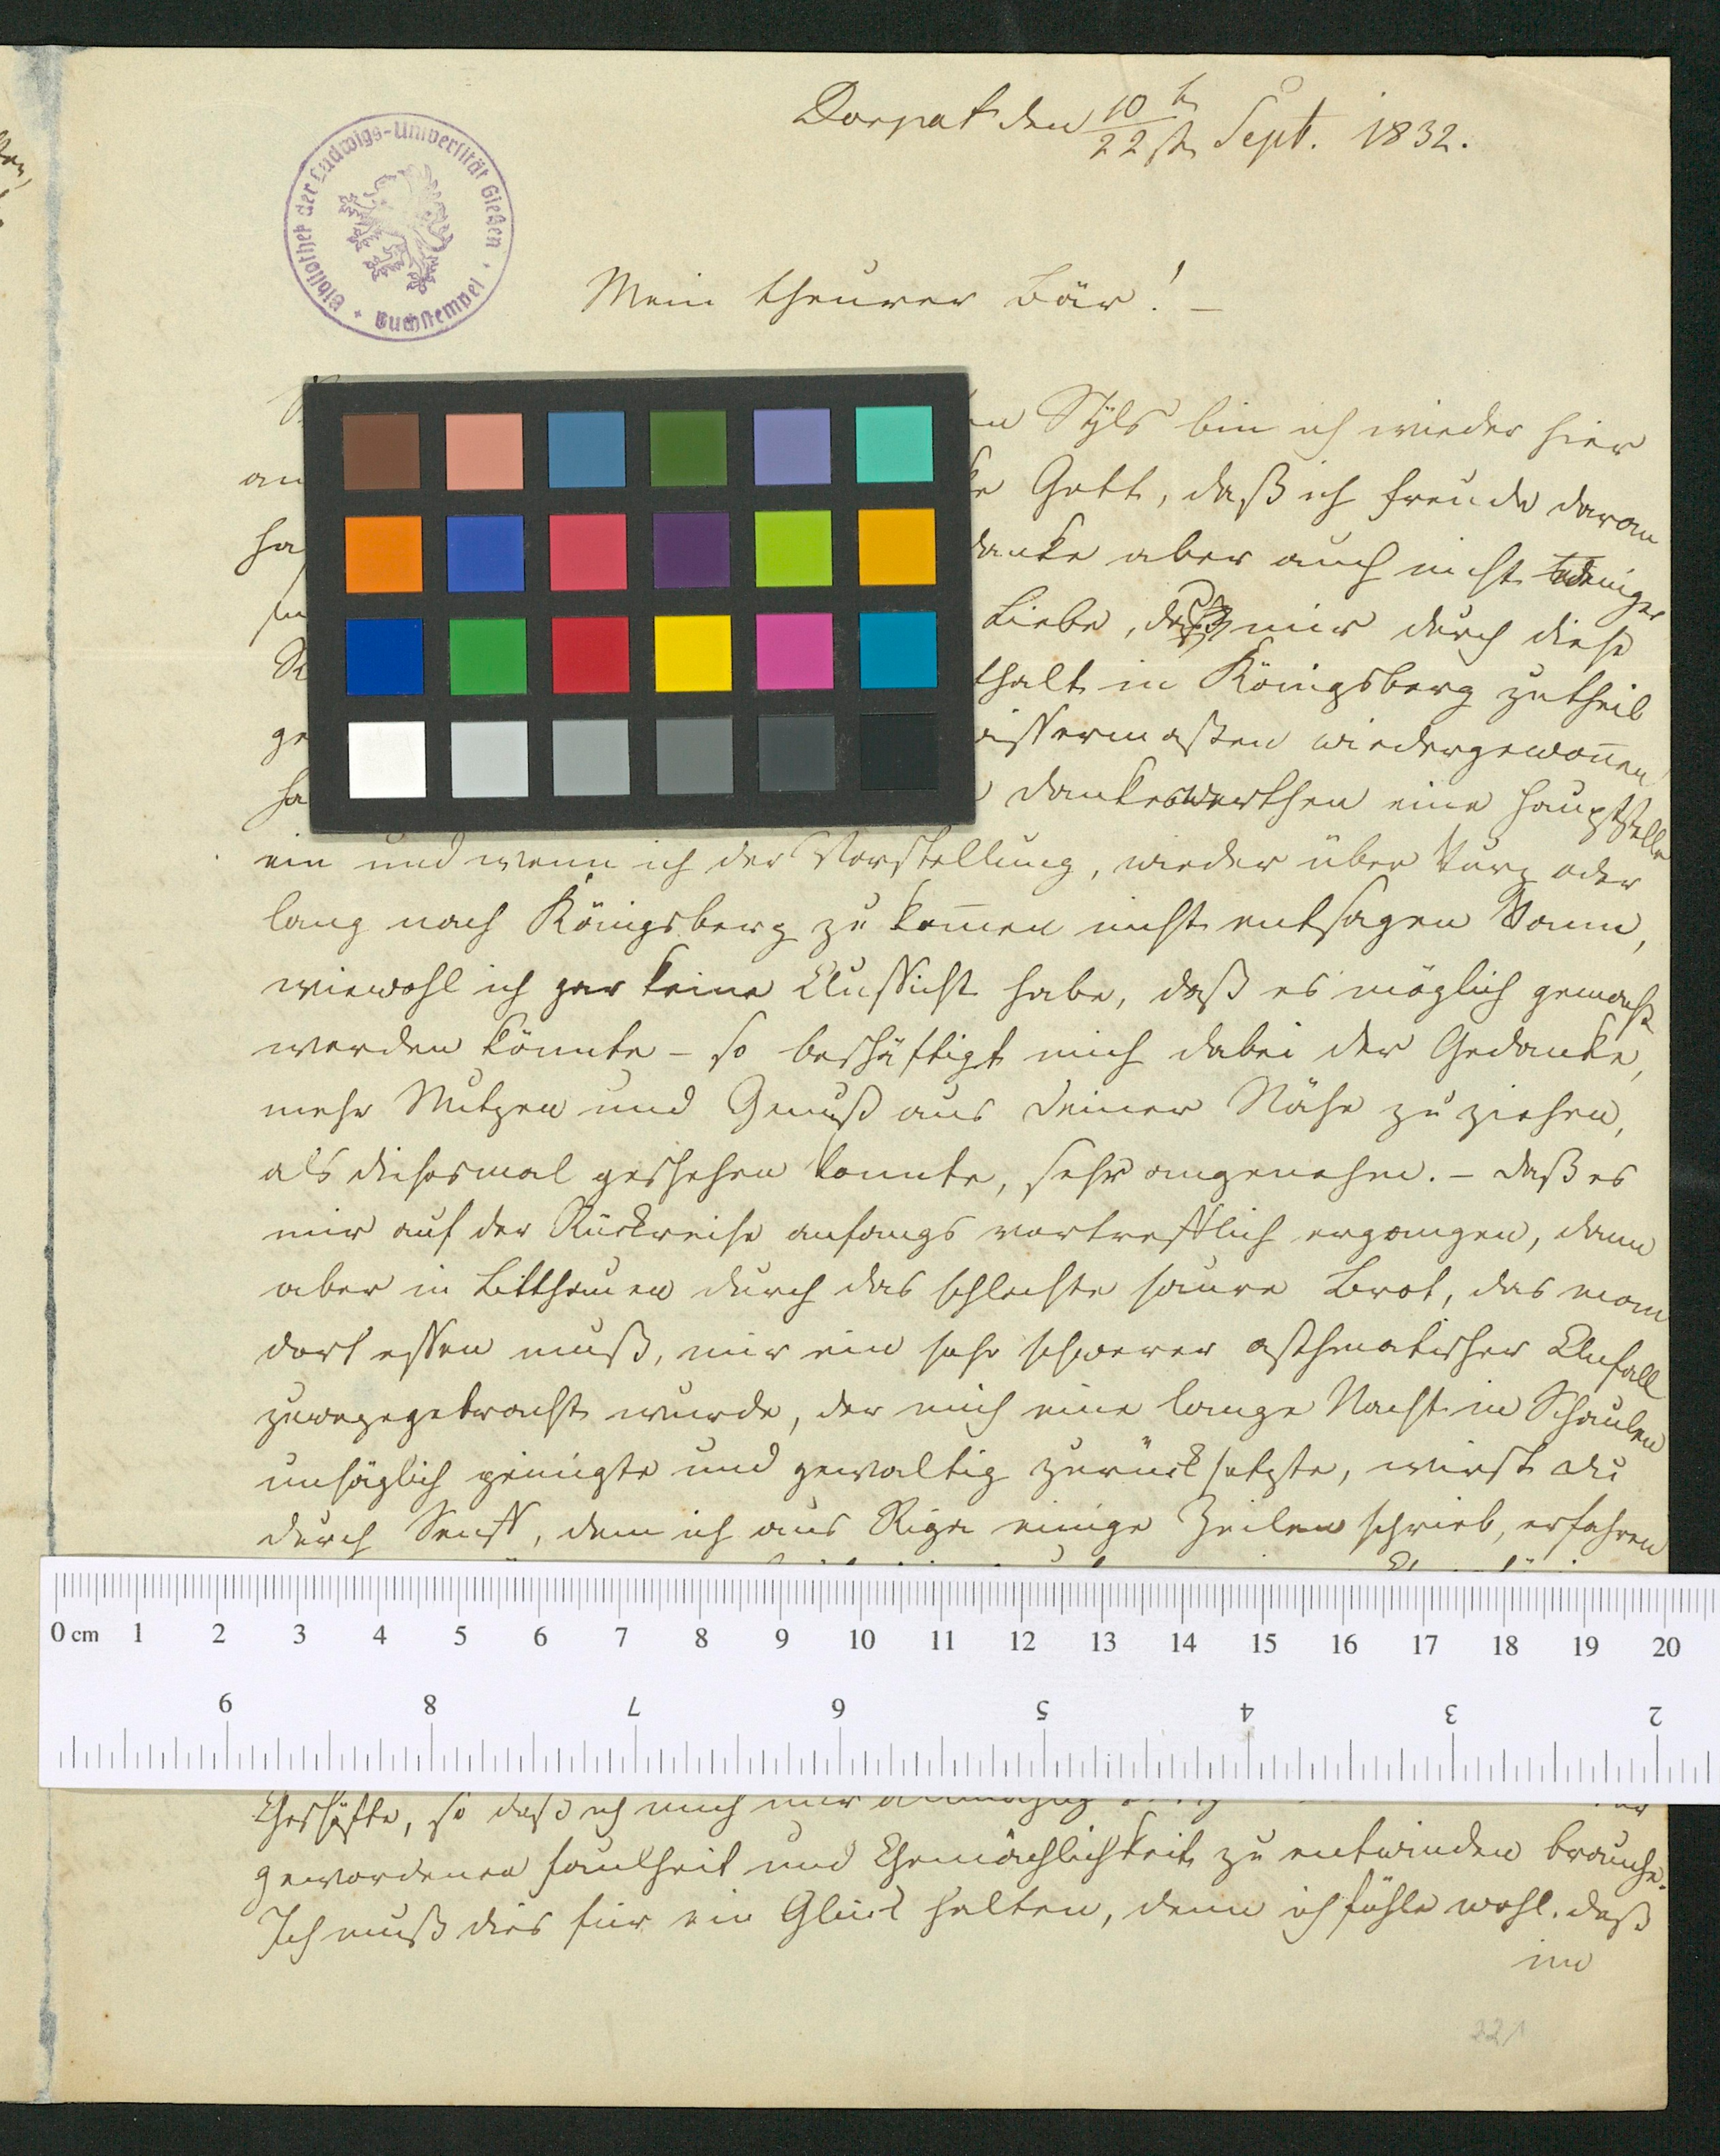 Dorpat den 10t/22st Sept. 1832.
Bibliothek der Ludwigs-Universität Gießen · Buchstempel ·
Mein theurer Bär! –
Styls bin ich wieder hier
an
Gott, daß ich Freude daran
ha
danke aber auch nicht weniger
Liebe, mir durch diese
thalt in Königsberg zutheil
ge
wissermaßen wiedergewonnen
ha
dankeswerthen eine Hauptstelle
ein und wenn ich der Vorstellung, wieder über kurz oder
lang nach Königsberg zu kommen nicht entsagen kann,
wiewohl ich gar keine Aussicht habe, daß es möglich gemacht
werden könnte – so beschäftigt mich dabei der Gedanke,
mehr Nutzen und Genuß aus Deiner Nähe zu ziehen,
als diesesmal geschehen konnte, sehr angenehm. – Daß es
mir auf der Rückreise anfangs vortrefflich ergangen, dann
aber in Litthauen durch das schlechte saure Brot, das man
dort essen muß, mir ein sehr schwerer asthmatischer Anfall
zuwegegebracht wurde, der mich eine lange Nacht in Schaulen
unsäglich peinigte und gewaltig zurücksetzte, wirst du
durch Senff, dem ich aus Riga einige Zeilen schrieb, erfahren
0 cm 1 2 3 4 5 6 7 8 9 10 11 12 13 14 15 16 17 18 19 20
9 8 7 6 5 4 3 2
Geschäfte, so daß ich mich nur
gewordenen Faulheit und Gemächlichkeit zu entwinden brauche.
Ich muß dies für ein Glück halten, denn ich fühle wohl, daß
im
221